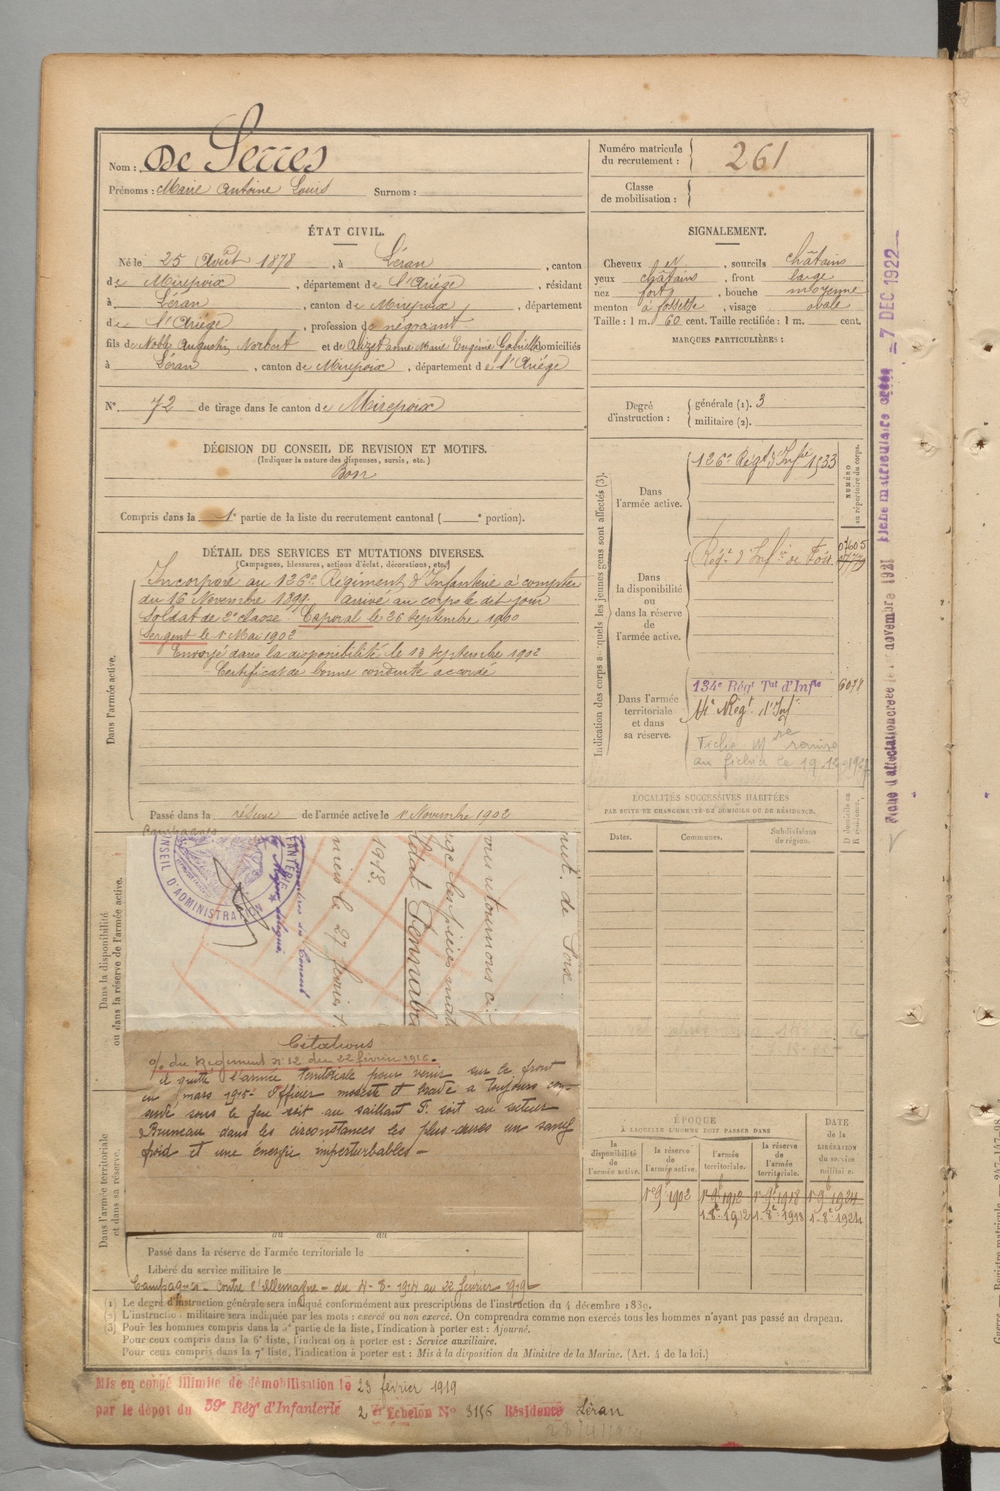 Nom : De Serres
Prénoms : Marie Antoine Louis Surnom :
Numéro matricule du recrutement : 261
Classe de mobilisation :
ÉTAT CIVIL.
Né le 25 Août 1878, à Léran, canton
de Mirepoix, département de l'Ariége, résidant
à Léran, canton de Mirepoix, département
de l'Ariége, profession de négociant
fils de Noble Augustin Norbert et de Auzet anne Marie Eugénie Gabrielle domiciliés
à Léran, canton de Mirepoix, département de l'Ariége
N° 72 de tirage dans le canton de Mirepoix
SIGNALEMENT.
Cheveux N, sourcils châtains
yeux châtains, front large
nez fort, bouche moyenne
menton à fossette, visage ovale
Taille : 1 m. 60 cent. Taille rectifiée : 1 m. cent.
MARQUES PARTICULIÈRES :
Degré d'instruction : générale (1). 3
militaire (2).
DÉCISION DU CONSEIL DE REVISION ET MOTIFS.
(Indiquer la nature des dispenses, sursis, etc.)
Bon
Compris dans la 1e partie de la liste du recrutement cantonal ( e portion).
DÉTAIL DES SERVICES ET MUTATIONS DIVERSES.
(Campagnes, blessures, actions d'éclat, décorations, etc.)
Dans l'armée active.
Incorporé au 126e Régiment d'Infanterie à compter
du 16 Novembre 1899 arrivé au corps le dit jour
Soldat de 2e classe Caporal le 26 septembre 1900
Sergent le 1 Mai 1902
Envoyé dans la disponibilité le 13 Septembre 1902
Certificat de bonne conduite accordé
Passé dans la réserve de l'armée active le 1 Novembre 1902
Indication des corps auxquels les jeunes gens sont affectés (3).
NUMÉRO au répertoire du corps.
Dans l'armée active.
126e Régt d'Infie 1533
Dans la disponibilité ou dans la réserve de l'armée active.
Régt d'Infie de Foix
Dans l'armée territoriale et dans sa réserve.
134e Régt Tal d'Infie 6078
Régt d'Inf
Fiche Mre remise
au fichier le 19.12.1927
LOCALITÉS SUCCESSIVES HABITÉES
PAR SUITE DE CHANGEMENT DE DOMICILE OU DE RÉSIDENCE.
Dates. Communes. Subdivisions de région. D domicile ou R résidence.
Dans la disponibilité ou dans la réserve de l'armée active.
Campagnes
CONSEIL D'ADMINISTRATION
Citations
O/ du Régiment N° 12 du 22 février 1916.
il quitte l'armée territoriale pour venir sur le front
en mars 1915. Officier modeste et brave a toujours con-
servé sous le feu soit au saillant F. soit au secteur
Bruneau dans les circonstances les plus dures un sang
froid et une énergie imperturbables
Dans l'armée territoriale et dans sa réserve.
Passé dans la réserve de l'armée territoriale le
Libéré du service militaire le
Campagne contre l'Allemagne du 4-8-1914 au 22 février 1919
ÉPOQUE
A LAQUELLE L'HOMME DOIT PASSER DANS
DATE de la LIBÉRATION du service militaire.
la disponibilité de l'armée active. la réserve de l'armée active. l'armée territoriale. la réserve de l'armée territoriale.
1er 9bre 1902 1er 9bre 1912 1er 9bre 1918 1er 9bre 1924
1-8e-1912 1-8e-1918 1-8e-1924
(1) Le degré d'instruction générale sera indiqué conformément aux prescriptions de l'instruction du 4 décembre 1889.
(2) L'instruction militaire sera indiquée par les mots : exercé ou non exercé. On comprendra comme non exercés tous les hommes n'ayant pas passé au drapeau.
(3) Pour les hommes compris dans la 2e partie de la liste, l'indication à porter est : Ajourné.
Pour ceux compris dans la 6e liste, l'indication à porter est : Service auxiliaire.
Pour ceux compris dans la 7e liste, l'indication à porter est : Mis à la disposition du Ministre de la Marine. (Art. 4 de la loi.)
Mis en congé illimité de démobilisation le 23 février 1919
par le dépot du 59e Régt d'Infanterie 2e Echelon N° 3156 Résidence Léran
7 DEC 1922